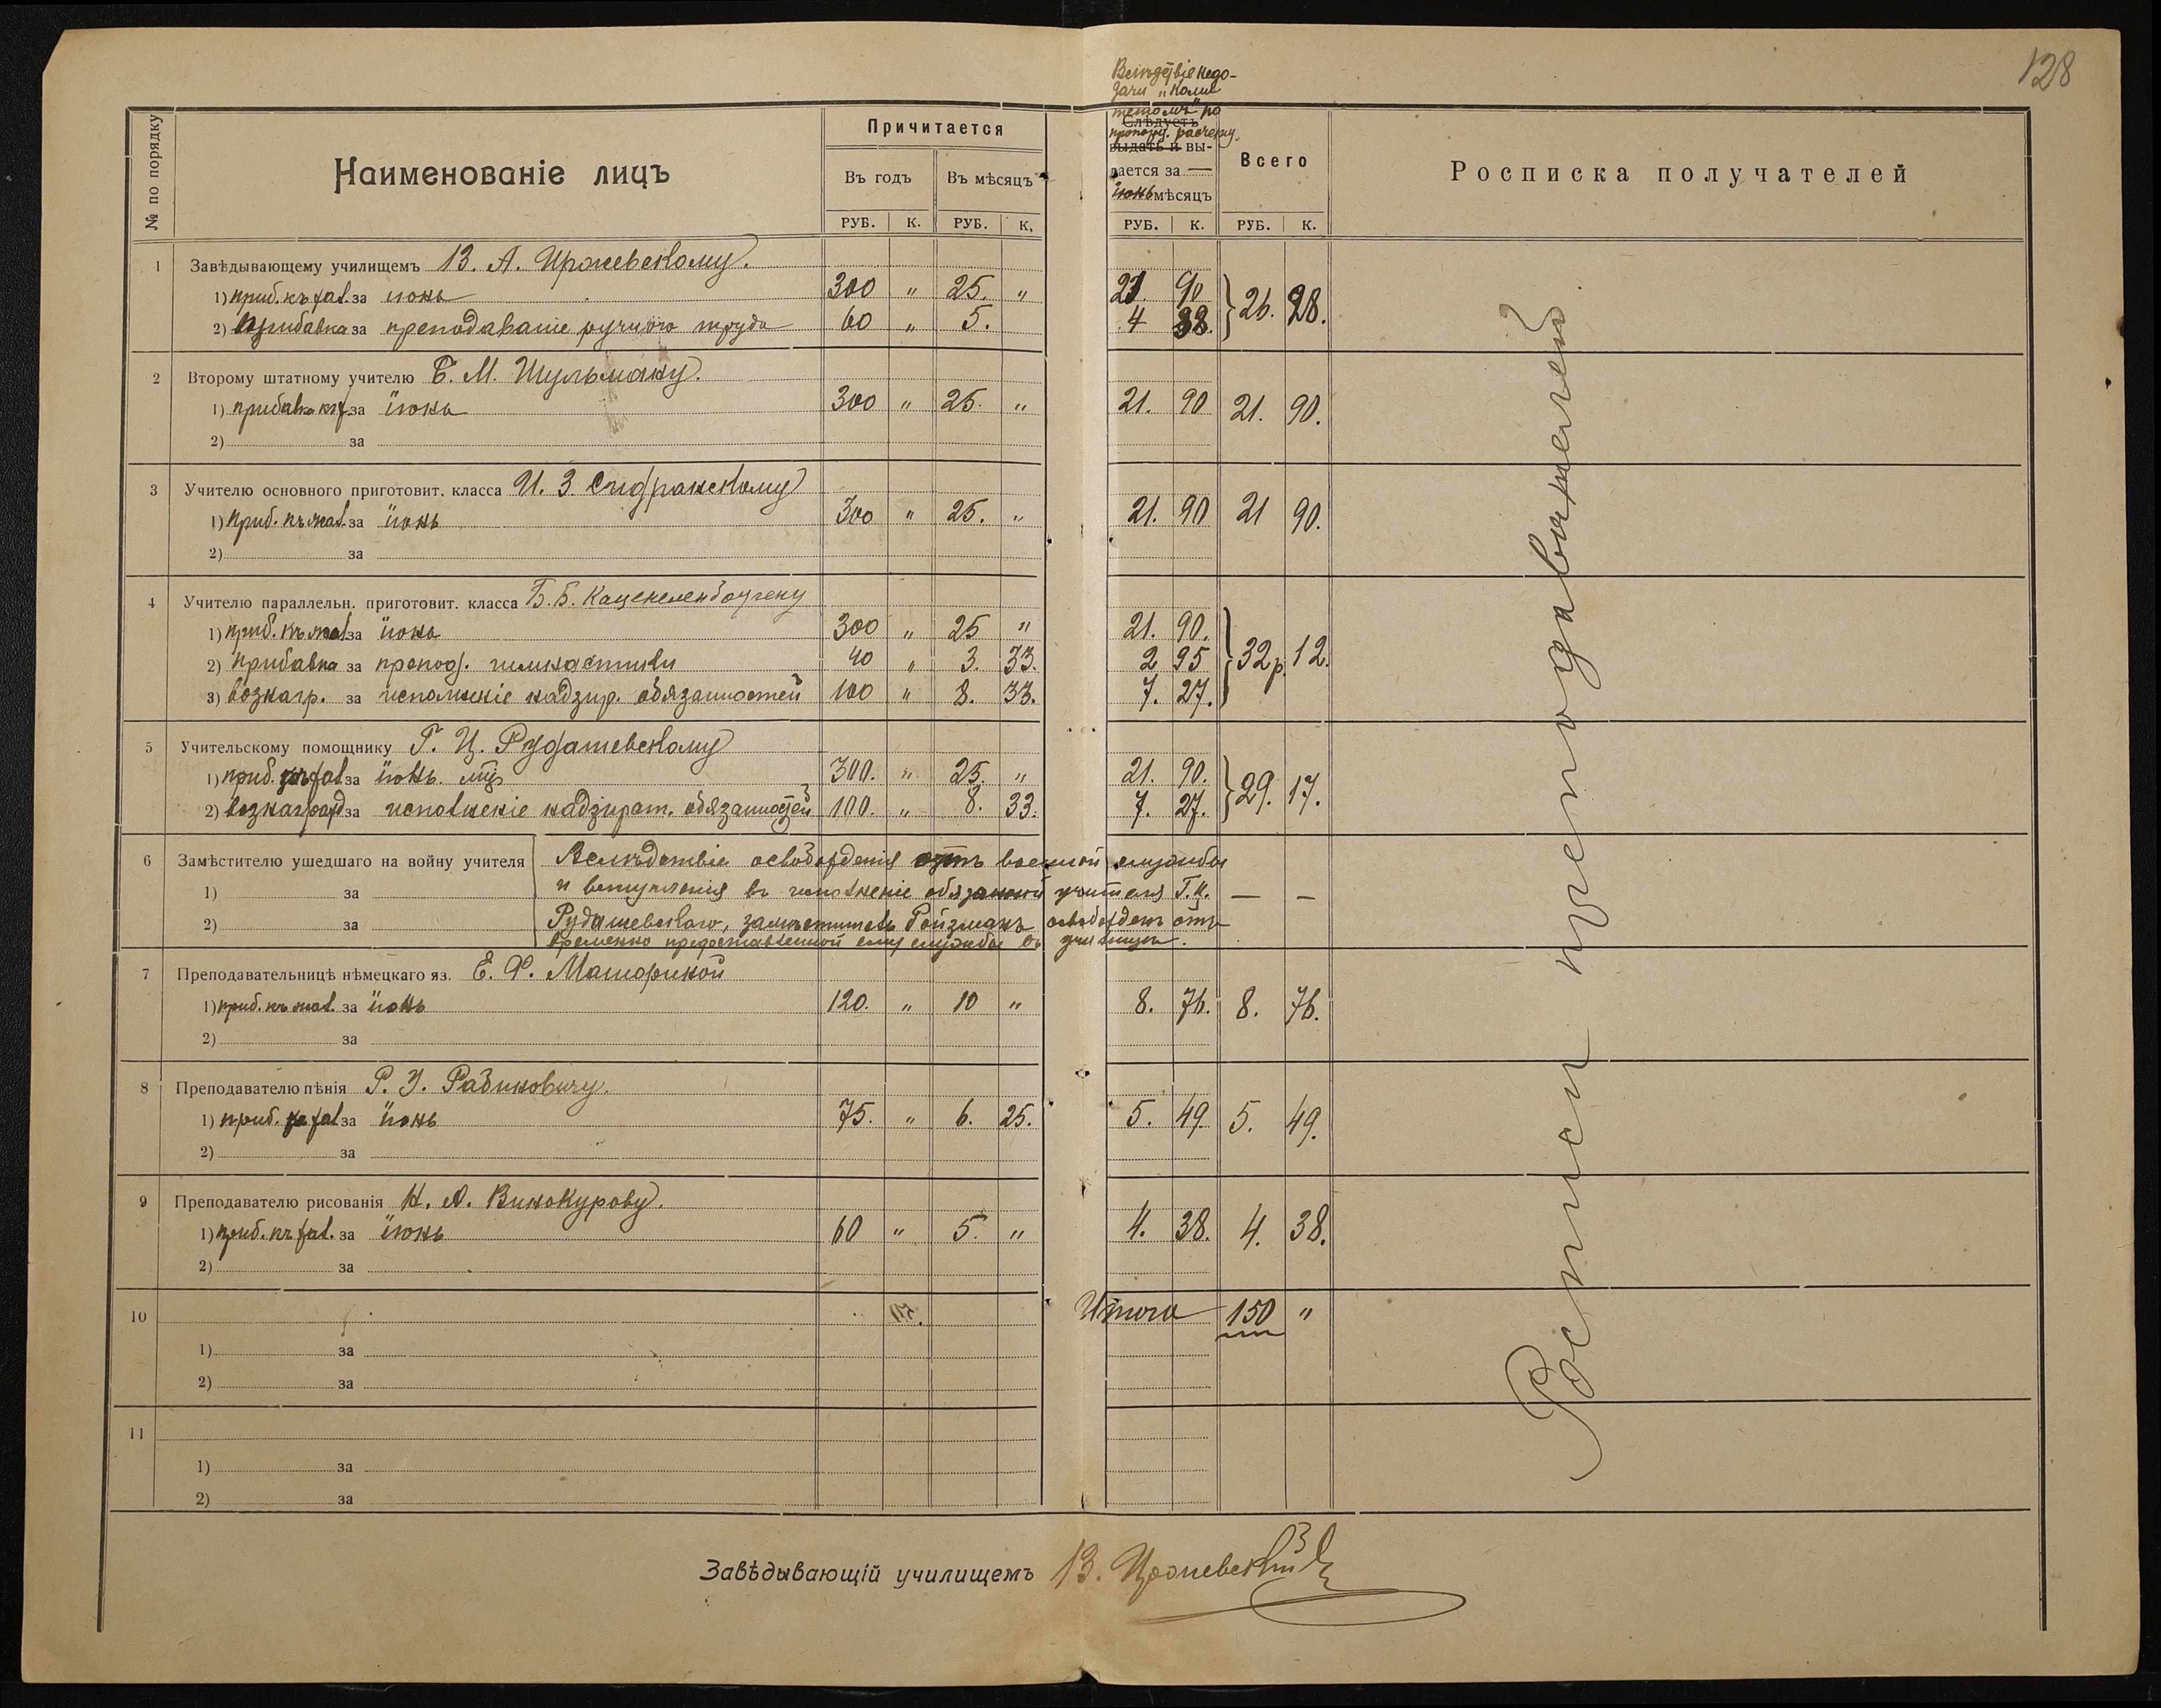 128
Вслѣдствіе недо-
дачи „Коми
тетомъ" по
Слѣдуетъ
пропорц. расчету
выдать и вы-
дается за —
іюнь мѣсяцъ
№ по порядку
Наименованіе лицъ
Причитается
Въ годъ
Въ мѣсяцъ
Всего
Росписка получателей
РУБ. К. РУБ. К. РУБ. К. РУБ. К.
1 Завѣдывающему училищемъ В. А. Иржевскому.
1) приб. къ жал. за іюнь 300 " 25. " 21. 90
2) Прибавка за преподаваніе ручного труда 60 " 5. 4 38. 26. 28.
2 Второму штатному учителю Б. М. Шульману.
1) прибавка къ ж. за іюнь 300 " 25. " 21. 90 21. 90.
2) за
3 Учителю основного приготовит. класса И. З.
1) приб. къ жал. за іюнь 300 " 25. " 21. 90 21 90.
2) за
4 Учителю параллельн. приготовит. класса Б. Б. Каценеленбогену
1) приб. къ жал за іюнь 300 " 25 " 21. 90.
2) прибавка за препод. гимнастики 40 " 3. 33. 2 95 32 р. 12.
3) вознагр. за исполненіе надзир. обязанностей 100 " 8. 33. 7. 27.
5 Учительскому помощнику Г. Ц. Рудашевскому
1) приб. къ жал за іюнь мц 300. " 25. " 21. 90.
2) вознагражд за исполненіе надзират. обязанностей 100. " 8. 33. 7. 27. 29. 17.
6 Замѣстителю ушедшаго на войну учителя Вслѣдствіе освобожденія отъ военной службы
1) за и вступленія въ исполненіе обязанной учителя Г. Ц. — —
2) за Рудашевскаго, замѣститель Ройзманъ освобожденъ отъ
временно предоставленной ему службы въ училищѣ.
7 Преподавательницѣ нѣмецкаго яз. Е. Ф.
1) приб. къ жал. за іюнь 120. " 10 " 8. 76. 8. 76.
2) за
8 Преподавателю пѣнія Р. З. Рабиновичу.
1) приб. къ жал за іюнь 75. " 6. 25. 5. 49. 5. 49.
2) за
9 Преподавателю рисованія Н. А. Винокурову.
1) приб. къ жал. за іюнь 60 " 5. " 4. 38. 4. 38.
2) за
10 Итого 150 "
1) за
2) за
11
1) за
2) за
Росписи преподавателей
Завѣдывающій училищемъ В. Иржевскій